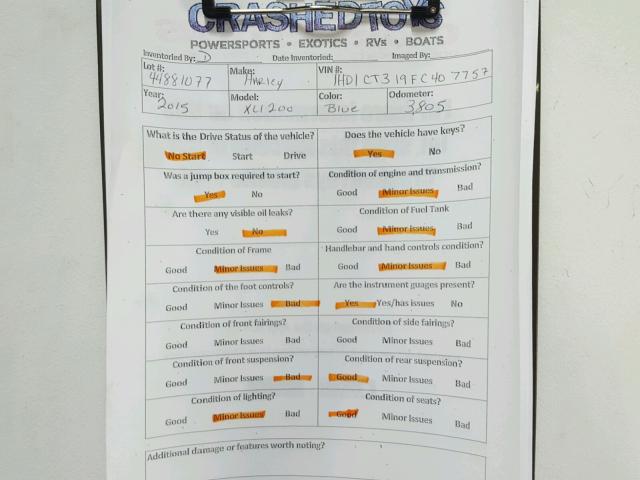 CRASHEDTOYS
POWERSPORTS • EXOTICS • RVs • BOATS
Inventoried By: Date Inventoried: Imaged By:
Lot #: Make: VIN #:
44881077 Harley 1HD1CT319FC407757
Year: Model: Color: Odometer:
2015 XL1200 Blue 3805
What is the Drive Status of the vehicle? Does the vehicle have keys?
No Start Start Drive Yes No
Was a jump box required to start? Condition of engine and transmission?
Yes No Good Minor Issues Bad
Are there any visible oil leaks? Condition of Fuel Tank
Yes No Good Minor Issues Bad
Condition of Frame Handlebar and hand controls condition?
Good Minor Issues Bad Good Minor Issues Bad
Condition of the foot controls? Are the instrument guages present?
Good Minor Issues Bad Yes Yes/has issues No
Condition of front fairings? Condition of side fairings?
Good Minor Issues Bad Good Minor Issues Bad
Condition of front suspension? Condition of rear suspension?
Good Minor Issues Bad Good Minor Issues Bad
Condition of lighting? Condition of seats?
Good Minor Issues Bad Good Minor Issues Bad
Additional damage or features worth noting?